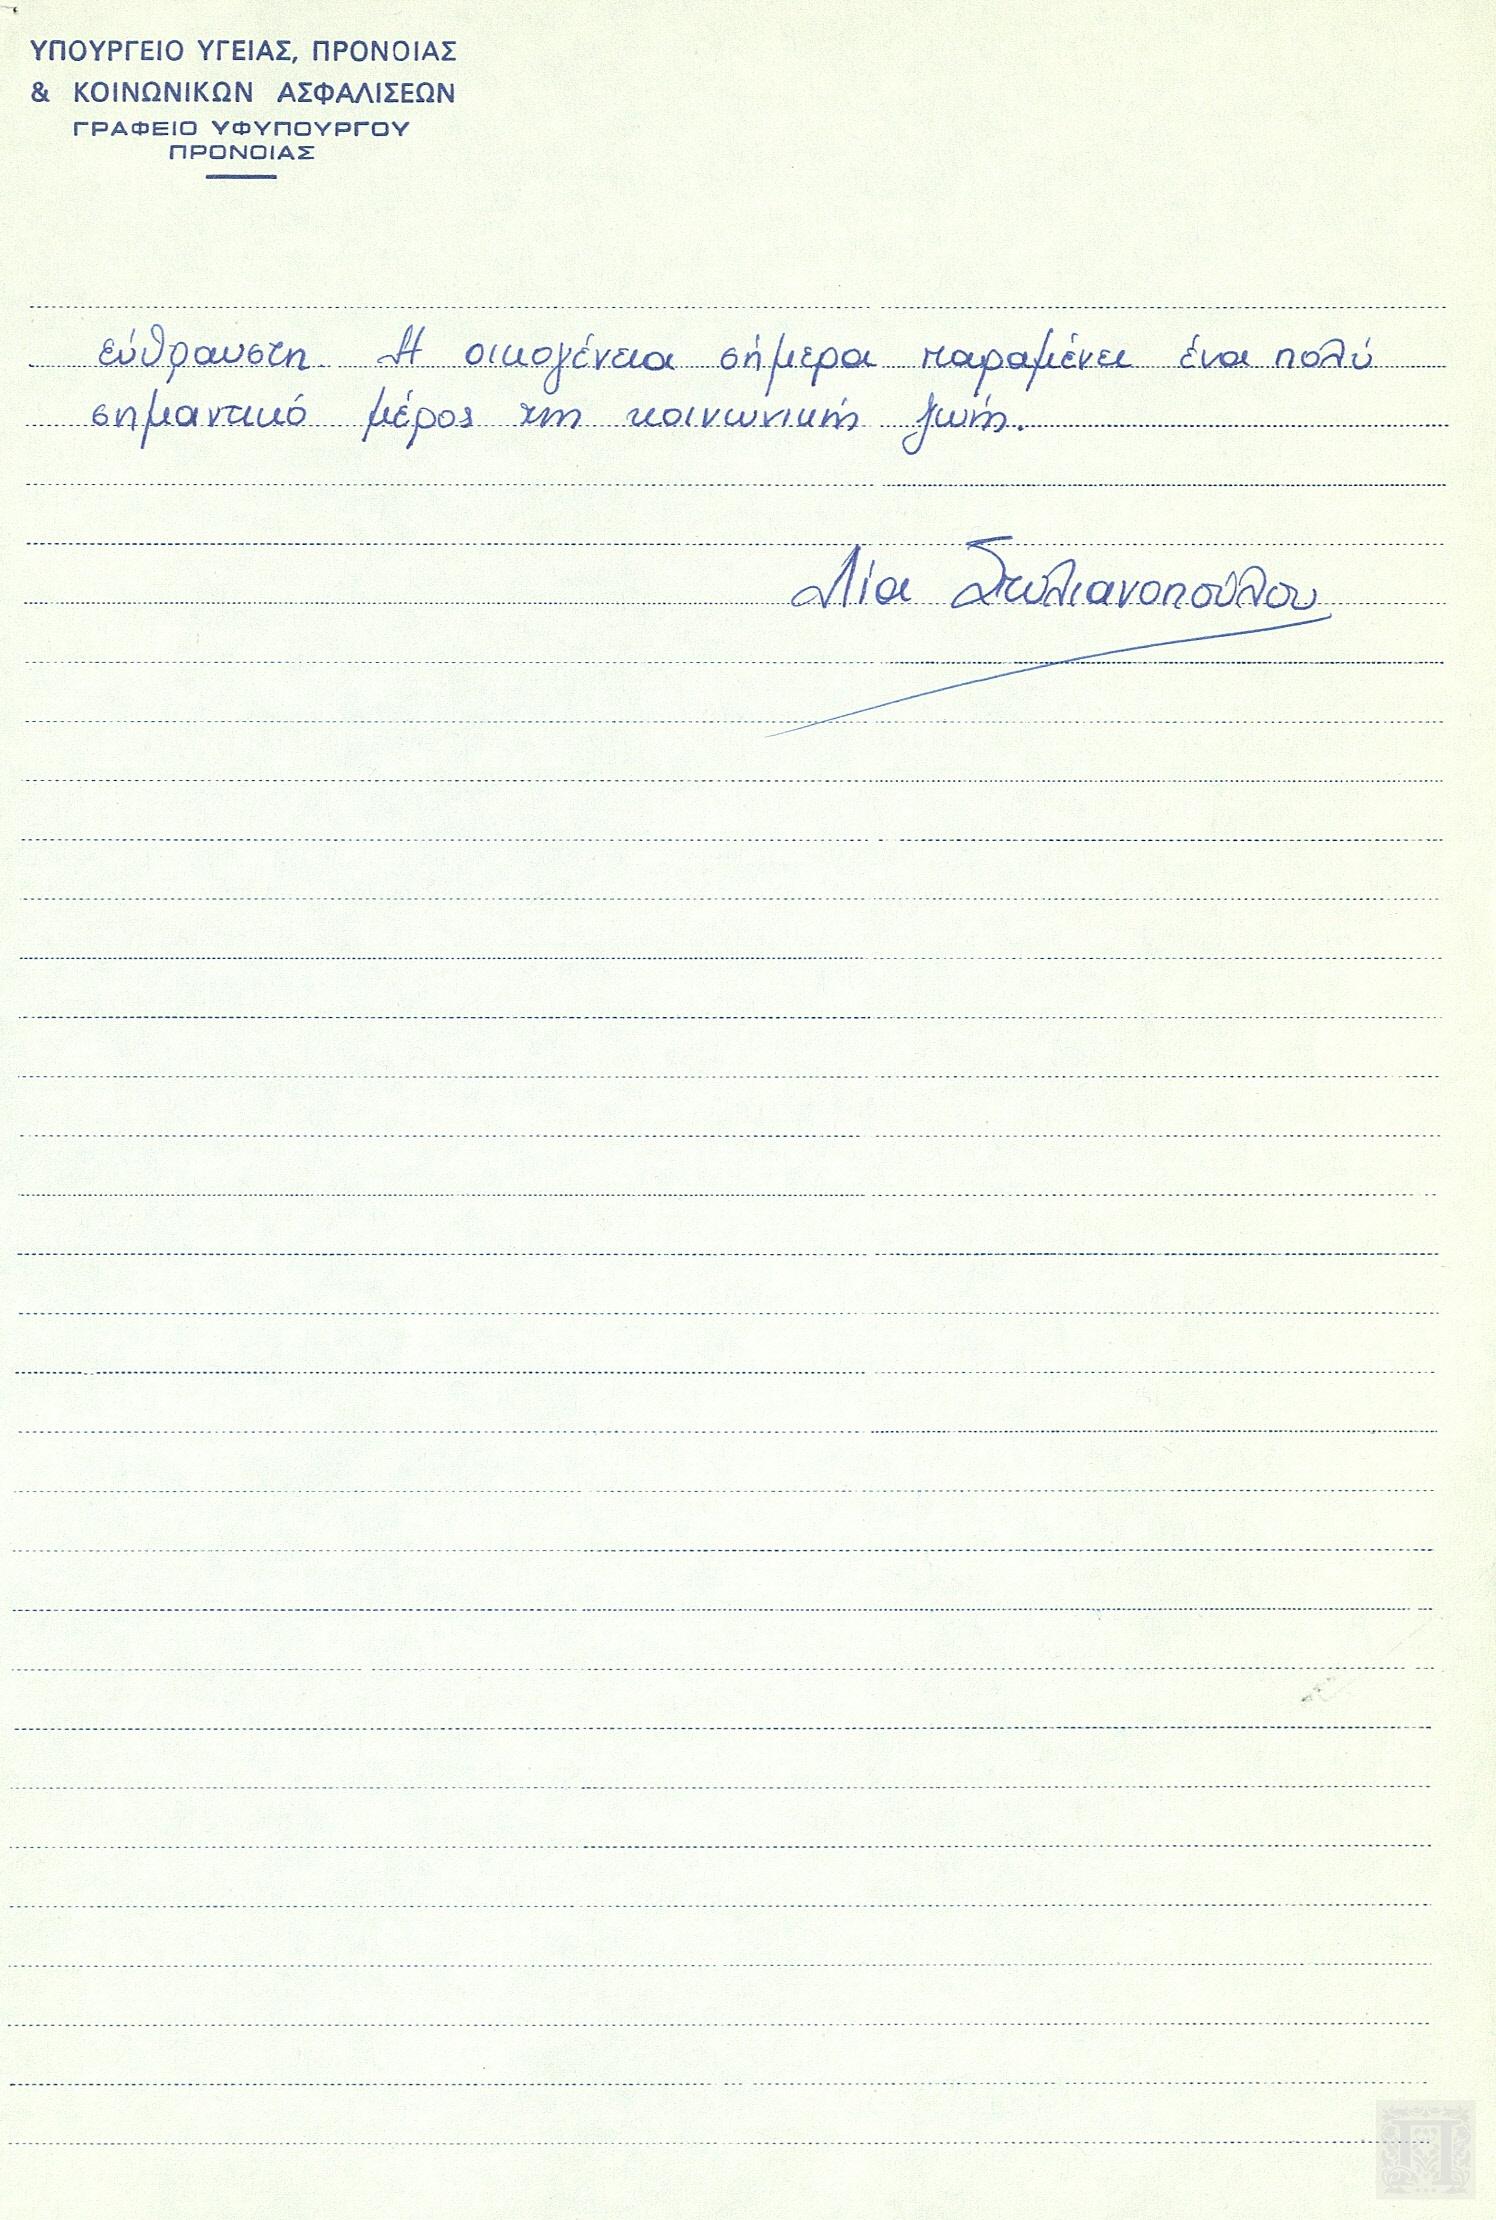 ΥΠΟΥΡΓΕΙΟ ΥΓΕΙΑΣ, ΠΡΟΝΟΙΑΣ
& ΚΟΙΝΩΝΙΚΩΝ ΑΣΦΑΛΙΣΕΩΝ
ΓΡΑΦΕΙΟ ΥΦΥΠΟΥΡΓΟΥ
ΠΡΟΝΟΙΑΣ
εύθραυστη. Η οικογένεια σήμερα παραμένει ένα πολύ
σημαντικό μέρος της κοινωνικής ζωής.
Λία Στυλιανοπούλου
Π